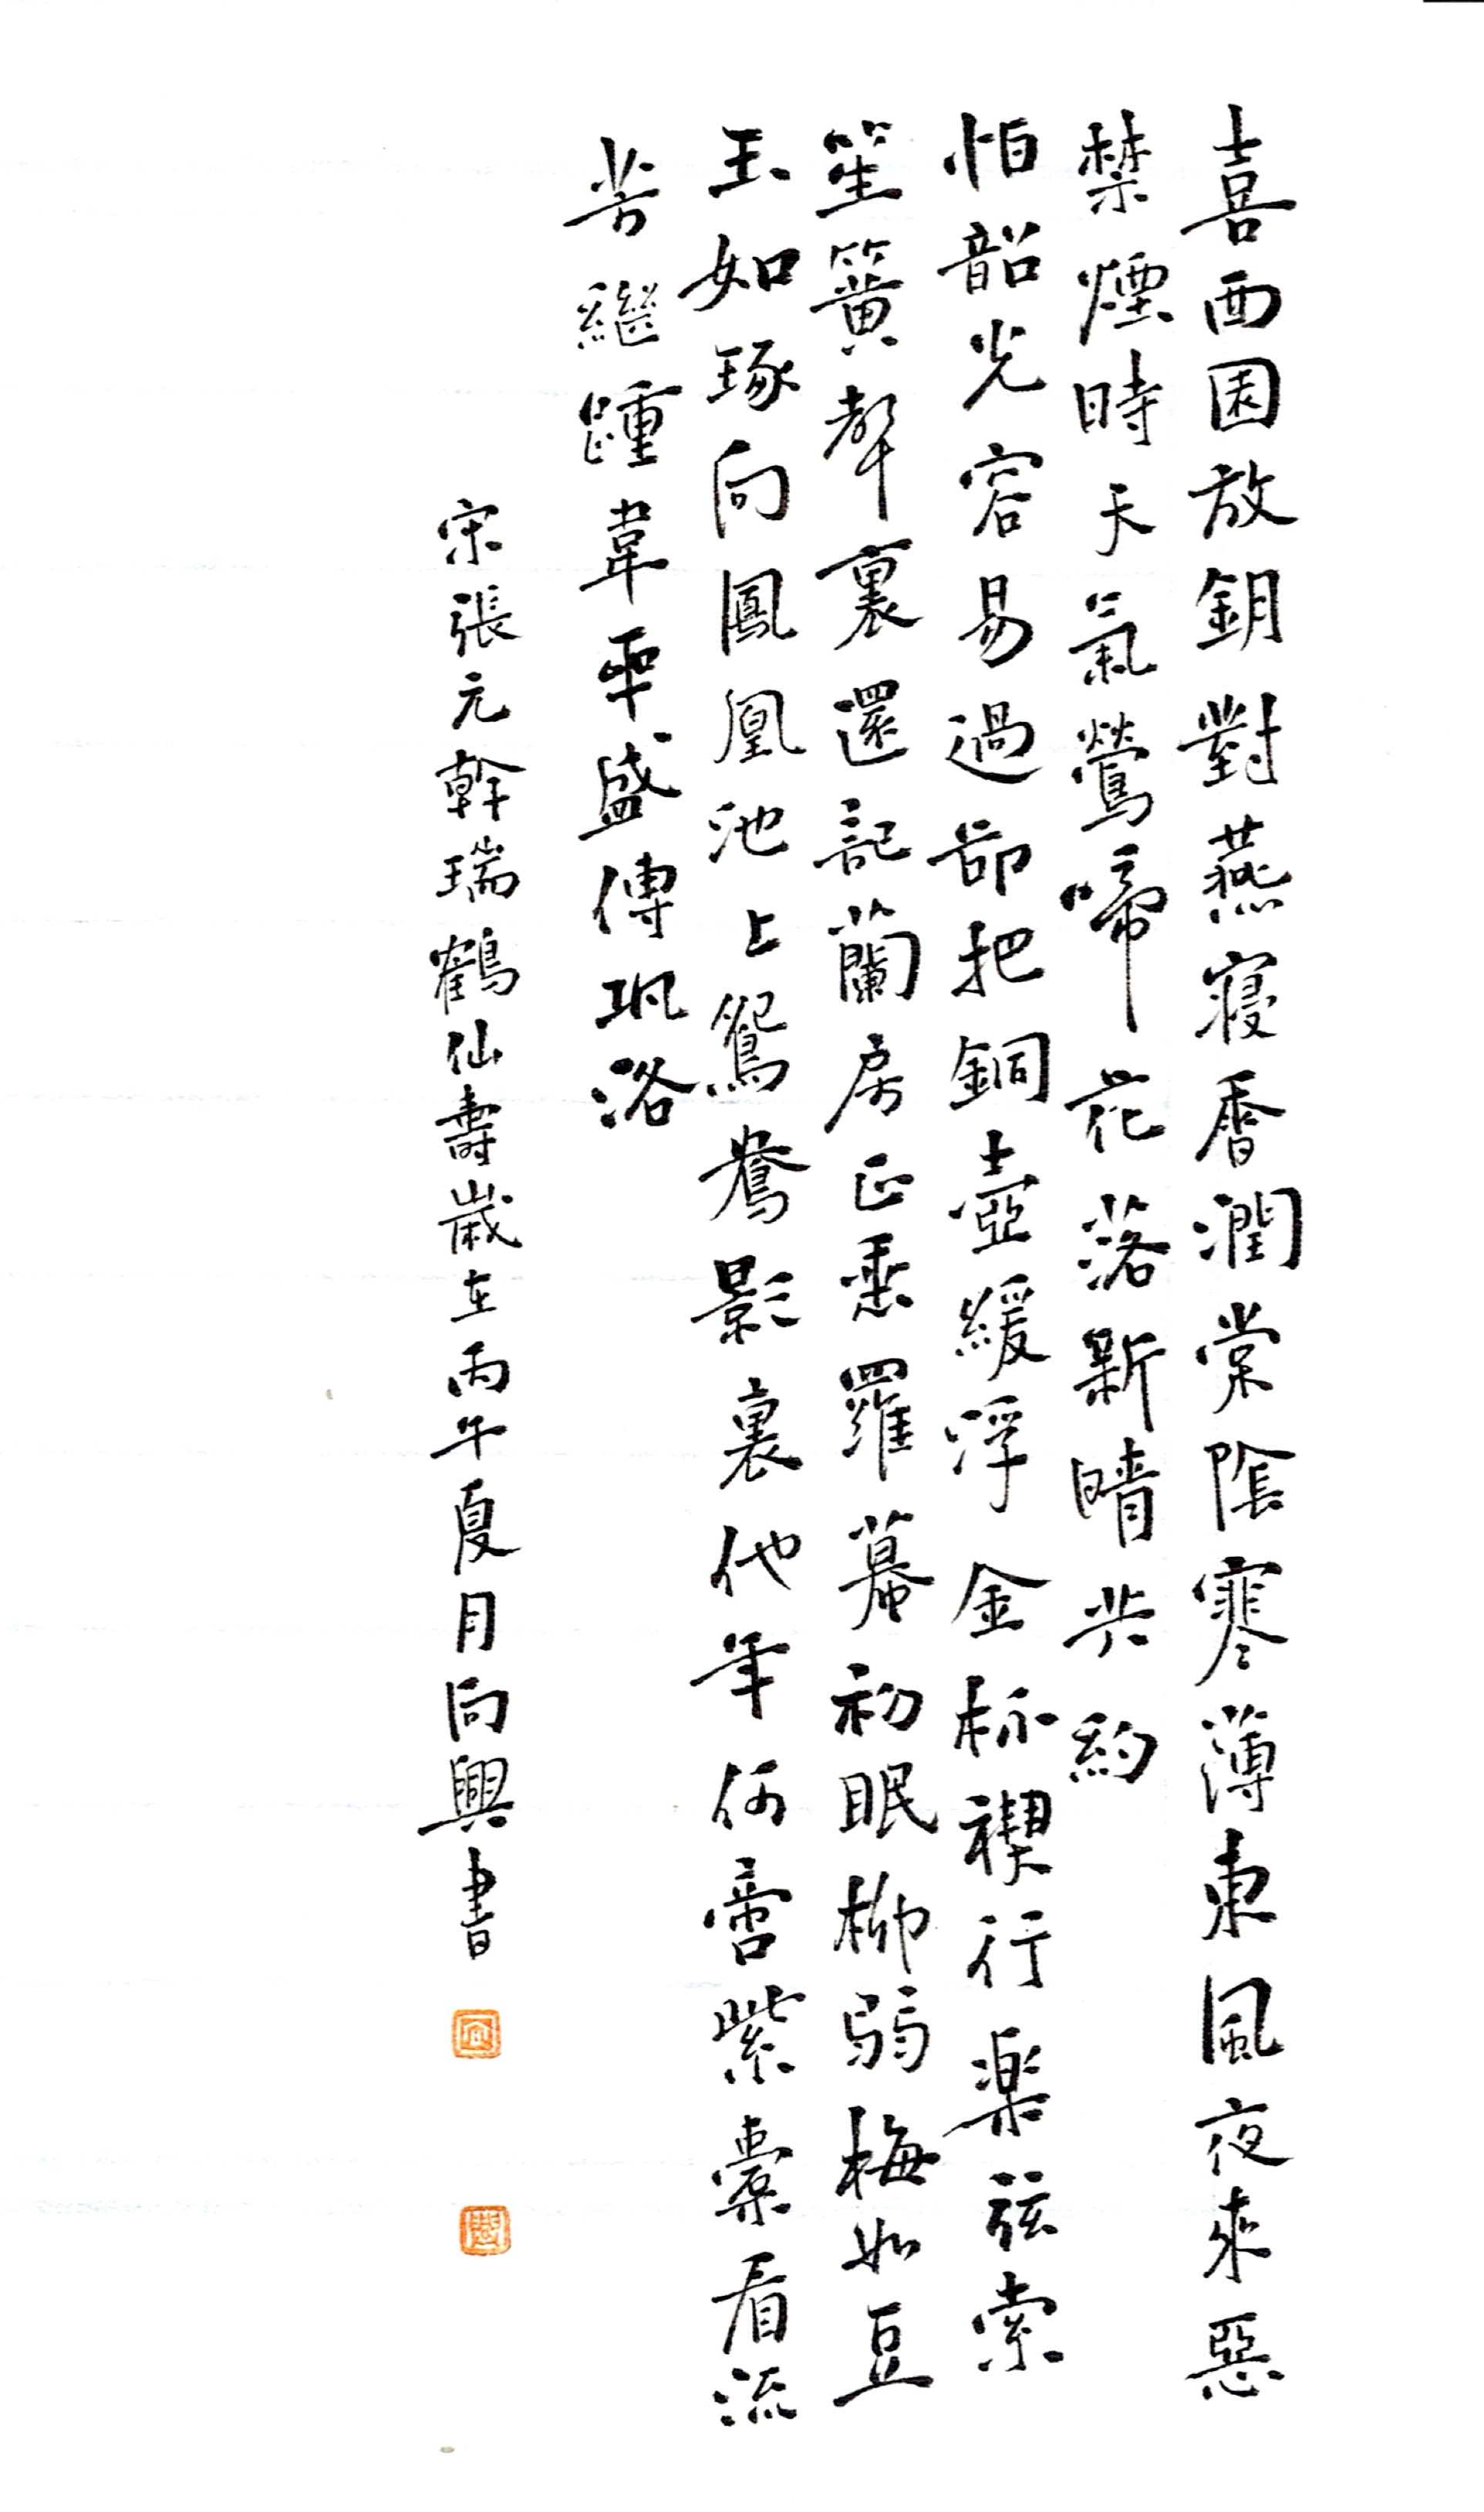 喜西園放鑰對燕寢香潤棠陰寒薄東風夜來惡
禁煙時天氣鶯啼花落新晴共約
怕韶光容易過却把銅壺緩浮金杯禊行樂弦索
笙簧聲裏還記蘭房正垂羅幕初眠柳弱梅如豆
玉如琢向鳳凰池上鴛鴦影裏他年何啻紫橐看流
芳繼踵韋平盛傳巩洛
宋張元幹瑞鶴仙壽歲在丙午夏月向興書